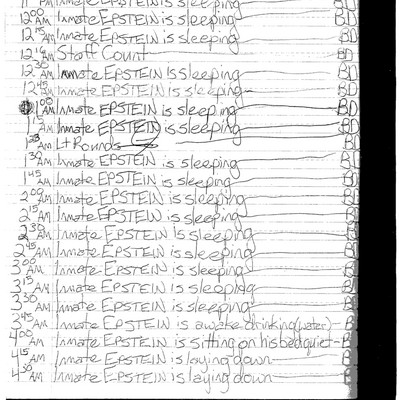 PM Inmate EPSTEIN is sleeping BD
12 00 AM Inmate EPSTEIN is sleeping BD
12 15 AM Inmate EPSTEIN is sleeping BD
12 AM Staff Count BD
12 30 AM Inmate EPSTEIN is sleeping BD
12 45 AM Inmate EPSTEIN is sleeping BD
1 00 AM Inmate EPSTEIN is sleeping BD
1 15 AM Inmate EPSTEIN is sleeping BD
AM Lt Rounds BD
1 30 AM Inmate EPSTEIN is sleeping BD
1 45 AM Inmate EPSTEIN is sleeping BD
2 00 AM Inmate EPSTEIN is sleeping BD
2 15 AM Inmate EPSTEIN is sleeping BD
2 30 AM Inmate EPSTEIN is sleeping BD
2 45 AM Inmate EPSTEIN is sleeping BD
3 00 AM Inmate EPSTEIN is sleeping BD
3 15 AM Inmate EPSTEIN is sleeping BD
3 30 AM Inmate EPSTEIN is sleeping BD
3 45 AM Inmate EPSTEIN is awake drinking (water) B
4 00 AM Inmate EPSTEIN is sitting on his bed quiet B
4 15 AM Inmate EPSTEIN is laying down B
4 30 AM Inmate EPSTEIN is laying down B